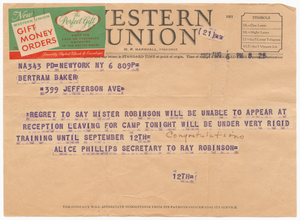 New
WESTERN UNION
GIFT
MONEY
ORDERS
The
Perfect Gift
WESTERN
UNION
1201
SYMBOLS
W. P. MARSHALL, PRESIDENT
(21)
NA343 PD=NEWYORK NY 6 809P=
BERTRAM BAKER=
399 JEFFERSON AVE=
REGRET TO SAY MISTER ROBINSON WILL BE UNABLE TO APPEAR AT
RECEPTION LEAVING FOR CAMP TONIGHT WILL BE UNDER VERY RIGID
TRAINING UNTIL SEPTEMBER 12TH=
Congratulations
ALICE PHILLIPS SECRETARY TO RAY ROBINSON=
12TH=
THE COMPANY WILL APPRECIATE SUGGESTIONS FROM ITS PATRONS CONCERNING ITS SERVICE